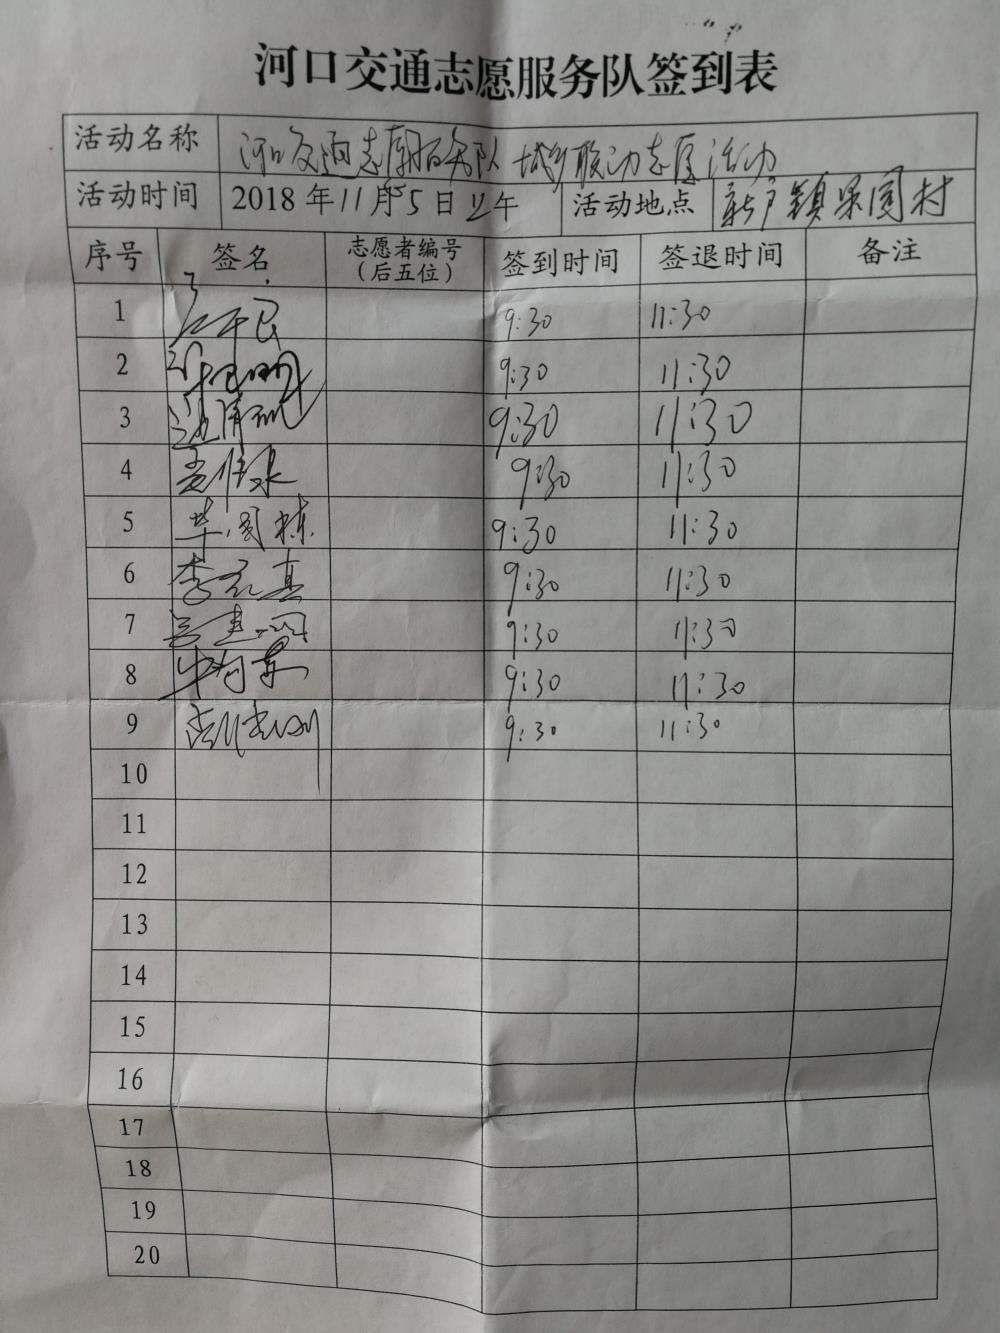 河口交通志愿服务队签到表
活动名称 河口交通志愿服务队城乡联动志愿活动
活动时间 2018年11月5日上午 活动地点 新户镇果园村
序号 签名 志愿者编号（后五位） 签到时间 签退时间 备注
1 9:30 11:30
2 9:30 11:30
3 9:30 11:30
4 9:30 11:30
5 毕国栋 9:30 11:30
6 李元真 9:30 11:30
7 9:30 11:30
8 9:30 11:30
9 9:30 11:30
10
11
12
13
14
15
16
17
18
19
20